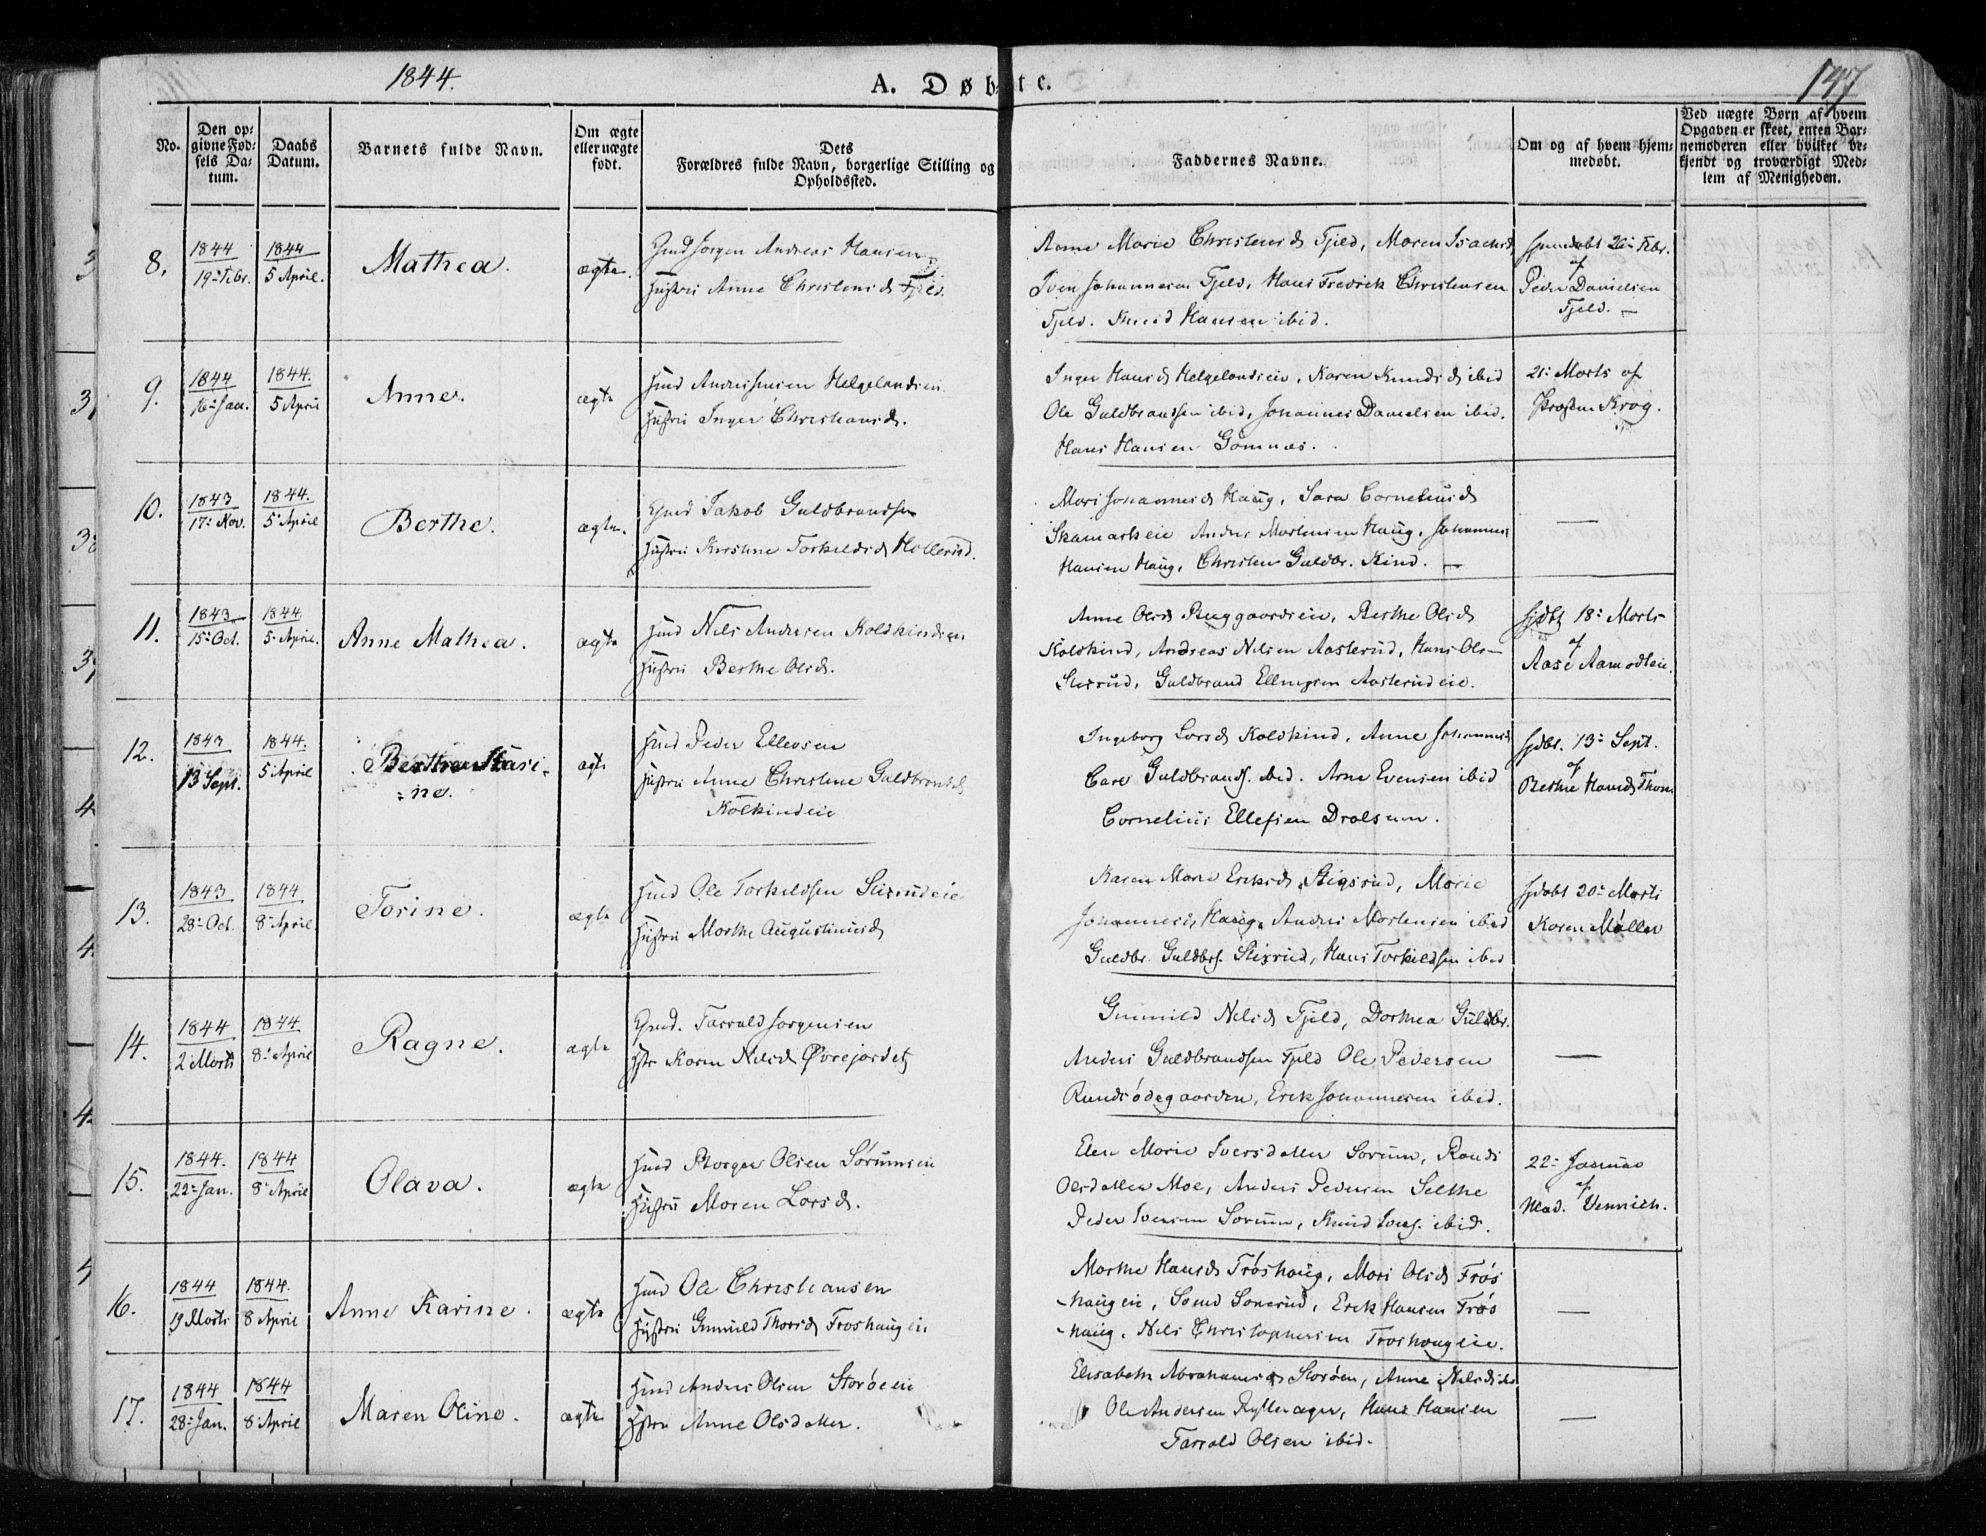 1844.
A. Døbte.
147
No.
Den op-
givne Fød-
sels Da-
tum.
Daabs
Datum.
Barnets fulde Navn.
Om ægte
eller uægte
født.
Dets
Forældres fulde Navn, borgerlige Stilling og
Opholdssted.
Faddernes Navne.
Om og af hvem hjem-
medøbt.
Ved uægte Børn af hvem
Opgaven er skeet, enten Bar-
nemoderen eller hvilket be-
kjendt og troværdigt Med-
lem af Menigheden.
8.
1844
19de Febr.
1844
5 April.
Mathea.
ægte.
Gmd Jørgen Andreas Hansen
Hustru Anne Christensd Fjeld.
Anne Marie Christensd Fjeld, Maren Isachsd
Iver Johannesen Fjeld, Hans Fredrik Christensen
Fjeld. Knud Hansen ibid.
Hjemdøbt 26de Febr.
af
Peder Danielsen
Fjeld.
9.
1844
16de Jan.
1844.
5 April
Anne.
ægte
Huusmd Helgelandseie
Hustru Inger Christiansd.
Inger Hansd Helgelandseie, Karen Knudsd ibid
Ole Guldbrandsen ibid, Johannes Danielsen ibid.
Hans Hansen Gomnæs.
21de Marts af
Provsten Krog.
10.
1843
17de Nov.
1844.
5 April
Berthe.
ægte.
Gmd Jakob Guldbrandsen
Hustru Kirstine Torkildsd Hollerud.
Mari Johannesd Haug, Sara Corneliusd
Anders Mortensen Haug, Johannes
Hansen Haug, Christen Guldbr. Kind.
—
11.
1843
15de Oct.
1844
5 April.
Anne Mathea.
ægte
Hmd Nils Andresen Koldkindeie
Hustru Berthe Olsd.
Anne Olsd Pruggaardseie, Berthe Olsd
Koldkind, Andreas Nilsen Aasterud, Hans Ols-
Stixrud, Guldbrand Ellingsen Aasterudeie.
Hjdbt 18de Marts
af
Aase Aamodteie
12.
1843
13 Sept.
1844.
5 April
Berthe Kari-
ne.
ægte
Hmd Peder Ellevsen
Hustru Anne Christine Guldbrandsd
Kolkindeie
Ingeborg Larsd Koldkind, Anne Johannesd
Carl Guldbrands. ibid. Arne Evensen ibid
Cornelius Ellefsen Dralsum.
Hjdbt. 13de Sept.
af
Berthe Hansd
13.
1843
28de Oct.
1844
8 April
Torine.
ægte
Hmd Ole Torkildsen Stixrudeie
Hustru Marthe Augustinusd
Karen Marie Eriksd Stigsrud, Marie
Johannesd, Haug, Anders Mortensen ibid
Guldbr. Guldbrs. Stixrud, Hans Torkildsen ibid
Hjdøbt 20de Marts
Karen Møller
14.
1844
2 Marts
1844
8 April
Ragne.
ægte
Gmd. Tarrald Jørgensen
Hstr Karen Nilsd Øvrejordet
Gunnild Nilsd Fjeld, Dorthea Guldbr.
Anders Guldbrandsen Fjeld Ole Pedersen
Rundsødegaarden, Erik Johannesen ibid.
—
15.
1844.
22de Jan.
1844
8 April
Olava.
ægte
Hmd Olsen Sørumseie
Hustru Maren Larsd.
Elen Marie Iversdatter Sørum, Randi
Olsdatter Moe, Anders Pedersen Selthe
Peder Iversen Sørum, Knud Ivers. ibid.
22de Januar
af
Mad. Vennich.
16.
1844
19 Marts
1844.
8 April
Anne Karine.
ægte
Hmd Ole Christiansen
Hustru Gunnild Thorsd Frøshaugeie
Marthe Hansd Frøshaug, Mari Olsd Frøs
haugeie, Svend Sonerud, Erik Hansen Frøs
haug. Nils Christophersen Frøshaugeie.
—
17.
1844
28de Jan.
1844
8 April
Maren Oline.
ægte
Hmd Anders Olsen Storøeie
Hstru Anne Olsdatter.
Elisabeth Abrahamsd Storøen, Anne Nilsd ibid
Ole Andersen Rytterager, Hans Hansen
Tarrald Olsen ibid.
—